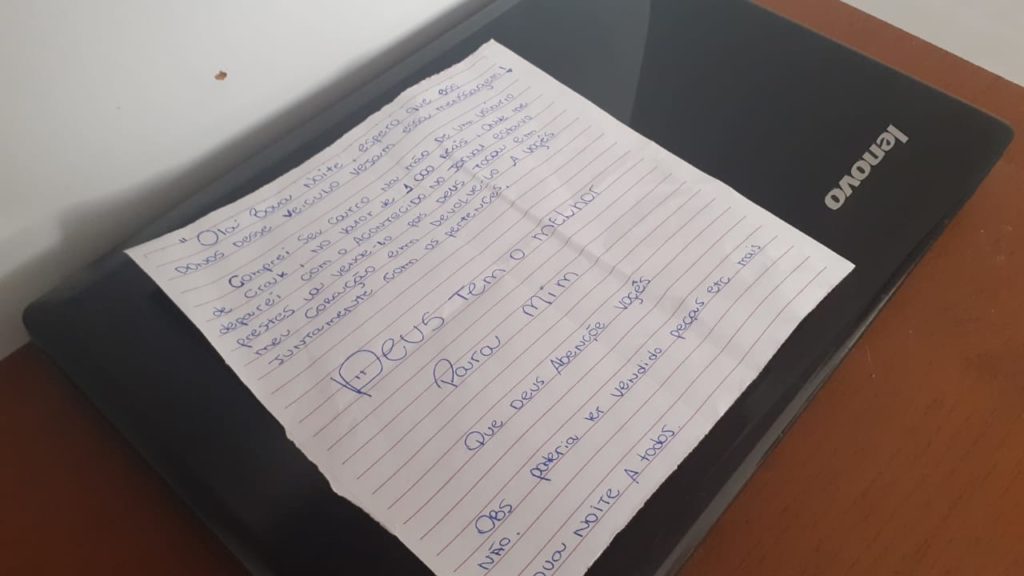 "Olá Boua Noite, espero que os
DONOS desse veiculo vejam essa mensagem!
Comprei seu carro na mão de um usiario
de crak, no valor de 1.000 reis, que me
deparei com o Acontecido no Jornau estava
prestes já vende-lo pos Deus tocou em
meu coração em devolvelo A voçês
Juntamente com os pertences.
"Deus tem o melhor
Para Mim
Que Deus Abençõe Voçês
OBS poderia ter vendido peças etc mais
NÃO.
oua Noite A todos.
lenovo